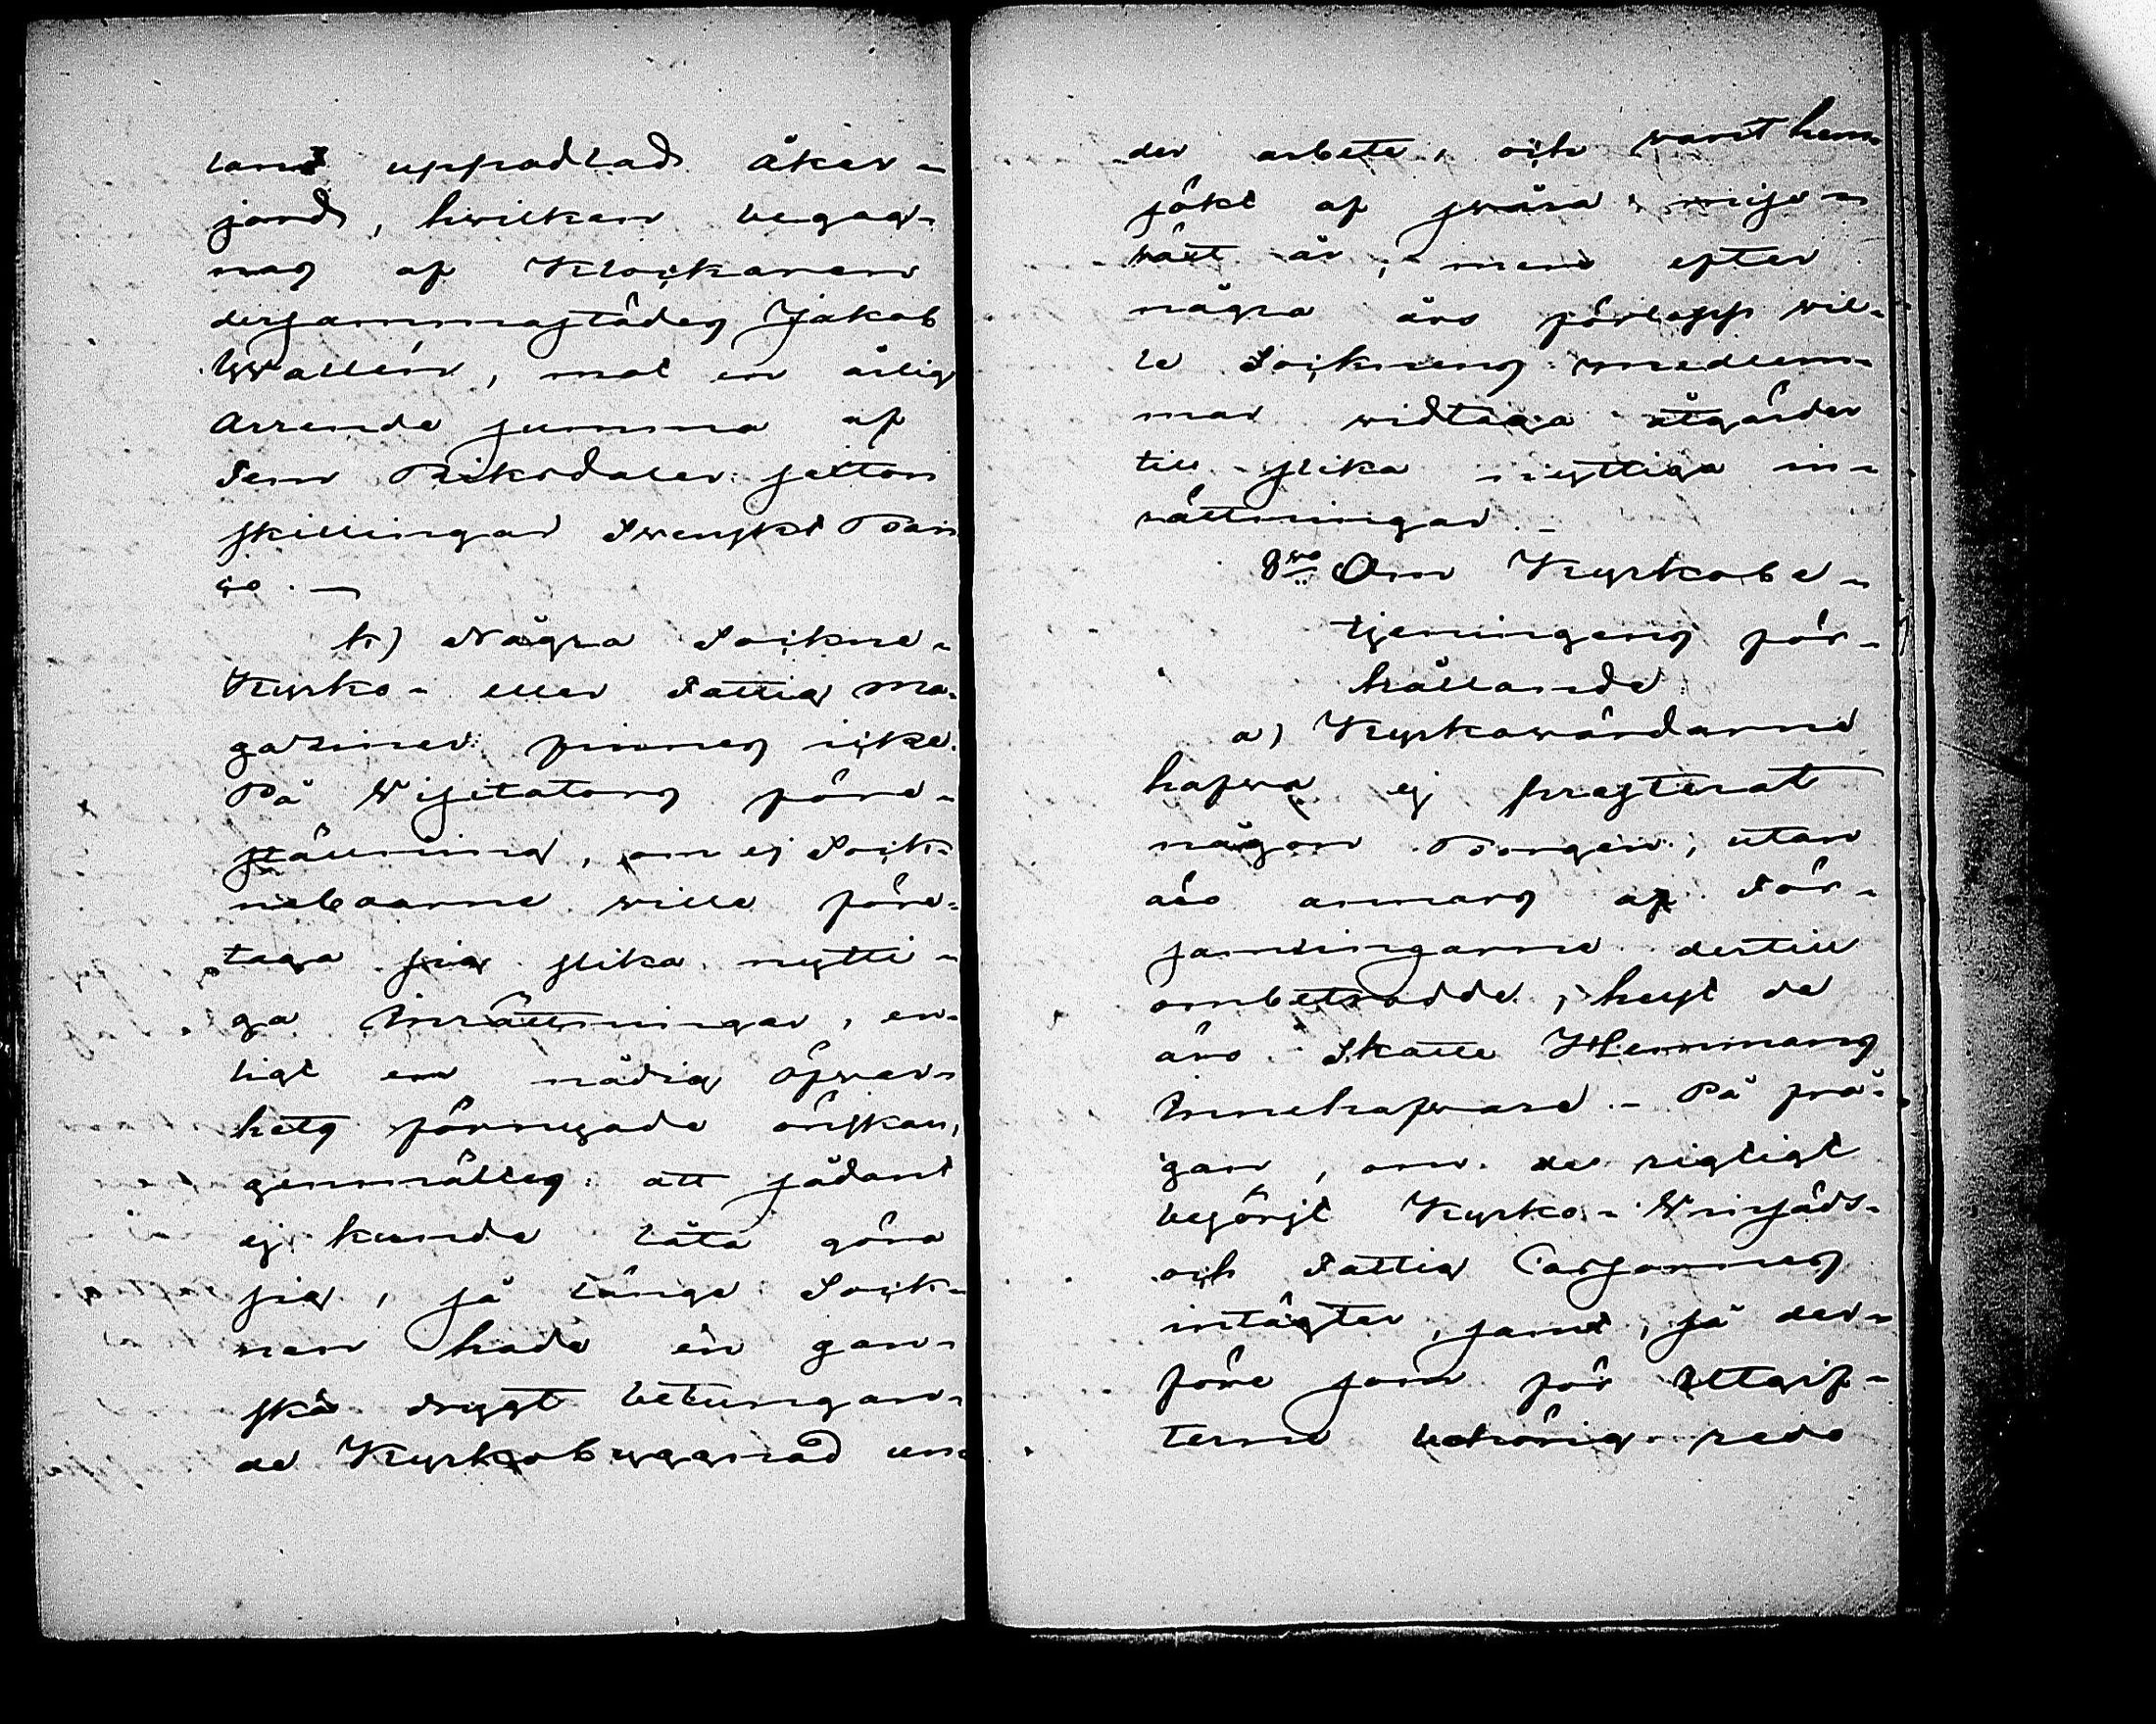 land uppodlad åker-
jord, hwilken begag-
nas af Klockaren
dersammastädes Jakob
Wallén, mot en årlig
Arrende summa af
Fem Riksdaler sexton
skillingar Swenskt Ban
co. —
h) Några Sockne-
Kyrko- eller Fattig Ma-
gaziner finnes icke.
På Visitators före-
ställning, om ej Sock-
neboarne wille före-
taga sig slika nytti-
ga Inrättningar, en-
ligt en nådig Öfwer-
hets förnyade önskan,
genmältes: att sådant
ej kunde låta göra
sig, så länge Sock-
nen hade en gan-
ska drygt betungan-
de Kyrkobyggnad un-
der arbete, och warit hem-
sökt af swåra misse-
wäxt år, men efter
några års förlopp wil-
le Socknens medlem-
mar widtaga åtgärder
till slika nyttiga in-
rättningar. -
8vo Om Kyrkobe-
tjeningens för-
hållande.
a) Kyrkowärdarne
hafwa ej presterat
någon Borgen, utan
äro annars af För-
samlingarne dertill
ombetrodde, helst de
äro Skatte Hemmans
Innehafware. - På frå-
gan, om de rigtigt
besörjt Kyrko- Winsäds-
och Fattig Cassornes
intägter, samt, så der-
före som för Utgif-
terne behörig redo